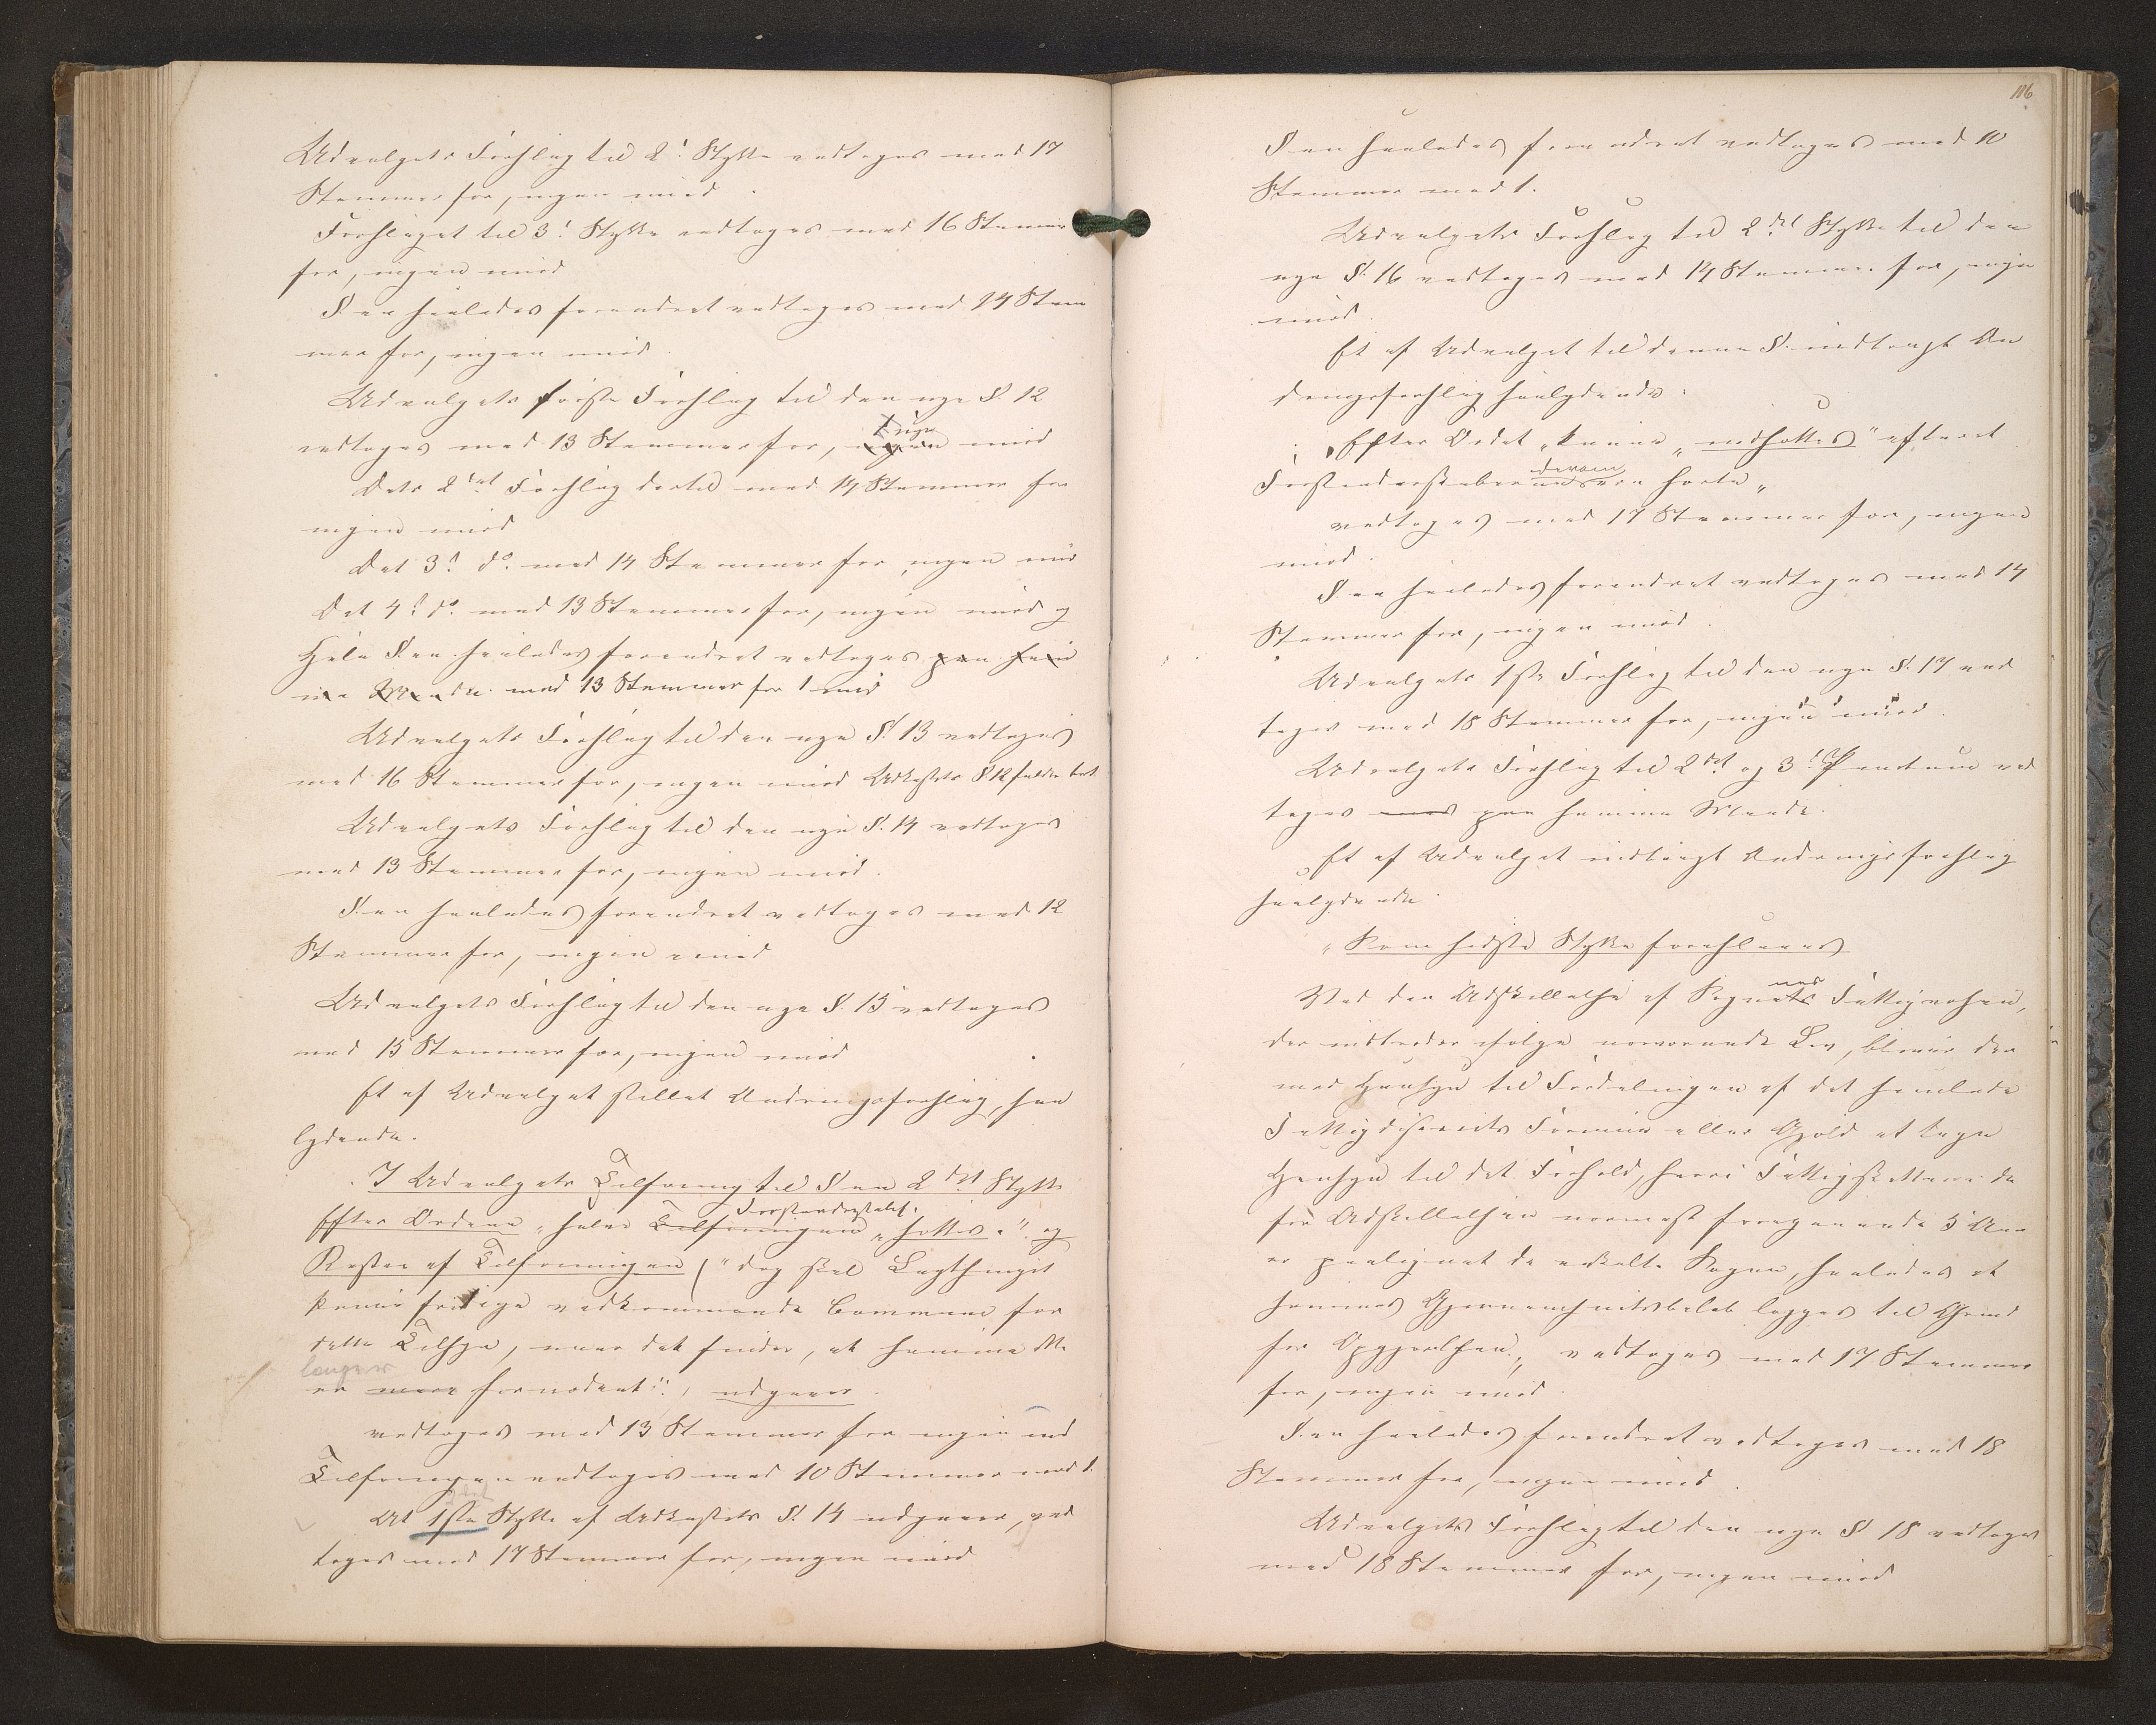 Udvalgets Forslag til 2! Stykke vedtoges med 17
Stemmer for, ingen imod.
Forslaget til 3! Stykke vedtoges med 16 Stemmer
for, ingen imod
§.en saaledes forandret vedtoges med 14 Stem
mer for, ingen imod.
Udvalgets første Forslag til den nye §. 12
vedtoges med 13 Stemmer for, ingen imod
Dets 2det Forslag dertil med 14 Stemmer for
ingen imod
Det 3! do. med 14 Stemmer for ingen imod
Det 4! do. med 13 Stemmer for, ingen imod og
Hele §.en saaledes forandret vedtoges paa sam
me Maade. med 13 Stemmer for 1 mod
Udvalgets Forslag til den nye §. 13 vedtoges
med 16 Stemmer for, ingen imod Udkastets §12 falder bort
Udvalgets Forslag til den nye §. 14 vedtoges
med 13 Stemmer for, ingen imod.
§.en saaledes forandret vedtoges med 12
Stemmer for, ingen imod
Udvalgets Forslag til den nye §. 15 vedtoges
med 15 Stemmer for, ingen imod
Et af Udvalget stillet Ændringsforslag, saa
lydende.
I Udvalgets Tilføining til §.en 2det Stykke
Forstanderskabet.
Efter Ordene "hele Tilføiningen "sættes." og
Resten af Tilføiningen ("dog skal Lagthinget
kunne fritage vedkommende Commune for
dette Tilsyn, naar det finder, at samme ikke
længer
er mere fornødent"), udgaaer.
vedtoges med 13 Stemmer for ingen imod
Tilføiningen vedtoges med 10 Stemmer mod 1.
At 1ste Stykke af Udkastets §. 14 udgaaer, ved
toges med 17 Stemmer for, ingen imod
116
§.en saaledes forandret vedtoges med 10
Stemmer mod 1.
Udvalgets Forslag til 2det Stykke til den
nye §. 16 vedtoges med 14 Stemmer for, ingen
imod.
Et af Udvalget til denne §. indbragt Æn
dringsforslag saalydende:
"Efter Ordet "kunne" indsættes" efter at
derom
Forstanderskaberne ere hørte"
vedtoges med 17 Stemmer for, ingen
imod.
§.en saaledes forandret vedtoges med 14
Stemmer for, ingen imod.
Udvalgets 1ste Forslag til den nye §. 17 ved
toges med 18 Stemmer for, ingen imod.
Udvalgets Forslag til 2det og 3! Punctum ved
toges med paa samme Maade.
Et af Udvalget indbragt Ændringsforslag
saalydende.
"Som sidste Stykke foreslaaes
Ved den Adskillelse af Sognenes Fattigvæsen,
der indtræder ifølge nærværende Lov, bliver der
med Hensyn til Fordelingen af det samlede
Fattigdistricts Formue eller Gjæld at tage
Hensyn til det Forhold, hvori Fattigskatterne de
før Adskillelsen nærmest foregaaende 5 Aar
er paalignet de enkelte Sogne, saaledes at
sammes Gjennemsnitsbeløb lægges til Grund
for Opgjørelsen", vedtoges med 17 Stemmer
for, ingen imod.
§.en saaledes forandret vedtoges med 18
Stemmer for, ingen imod.
Udvalgets Forslag til den nye § 18 vedtoges
med 18 Stemmer for, ingen imod